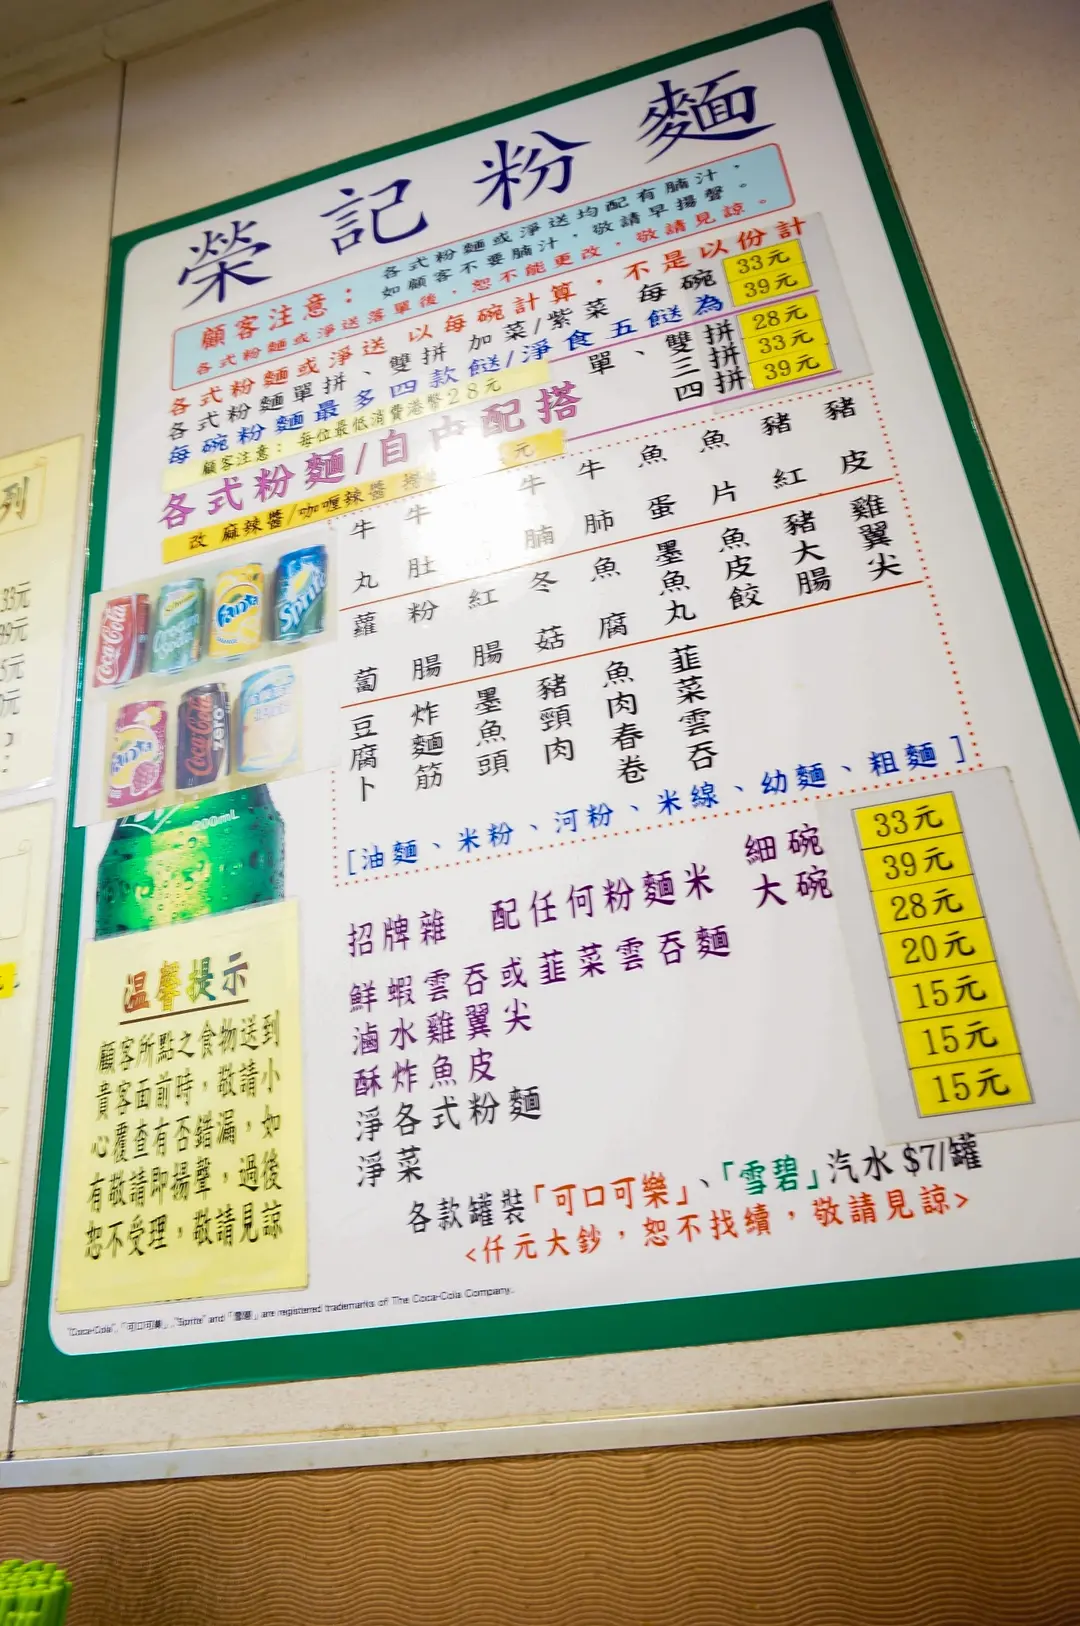 榮記粉麵
顧客注意：
各式粉麵或淨送均配有腩汁，
如顧客不要腩汁，敬請早揚聲。
各式粉麵或淨送落單後，恕不能更改，敬請見諒。
各式粉麵或淨送 以每碗計算，不是以份計
各式粉麵單拼、雙拼 加菜/紫菜 每碗 33元
39元
每碗粉麵最多四款餸/淨食五餸為
顧客注意：每位最低消費港幣28元
單、雙拼 28元
三拼 33元
四拼 39元
各式粉麵/自由配搭
改麻辣醬/咖喱辣醬 元
牛丸 牛肚 牛腩 牛肺 魚蛋 魚片 豬紅 豬皮
蘿蔔 粉腸 紅腸 冬菇 魚腐 墨魚丸 魚皮餃 豬大腸 雞翼尖
豆腐卜 炸麵筋 墨魚頭 豬頸肉 魚肉春卷 韮菜雲吞
[油麵、米粉、河粉、米線、幼麵、粗麵]
招牌雜 配任何粉麵米 細碗 33元
大碗 39元
鮮蝦雲吞或韮菜雲吞麵 28元
滷水雞翼尖 20元
酥炸魚皮 15元
淨各式粉麵 15元
淨菜 15元
各款罐裝「可口可樂」、「雪碧」汽水 $7/罐
<仟元大鈔，恕不找續，敬請見諒>
Coca-Cola
Fanta
Sprite
Fanta
Coca-Cola zero
500mL
溫馨提示
顧客所點之食物送到
貴客面前時，敬請小
心覆查有否錯漏，如
有敬請即揚聲，過後
恕不受理，敬請見諒
"Coca-Cola", 「可口可樂」, "Sprite" and 「雪碧」 are registered trademarks of The Coca-Cola Company.
列
33元